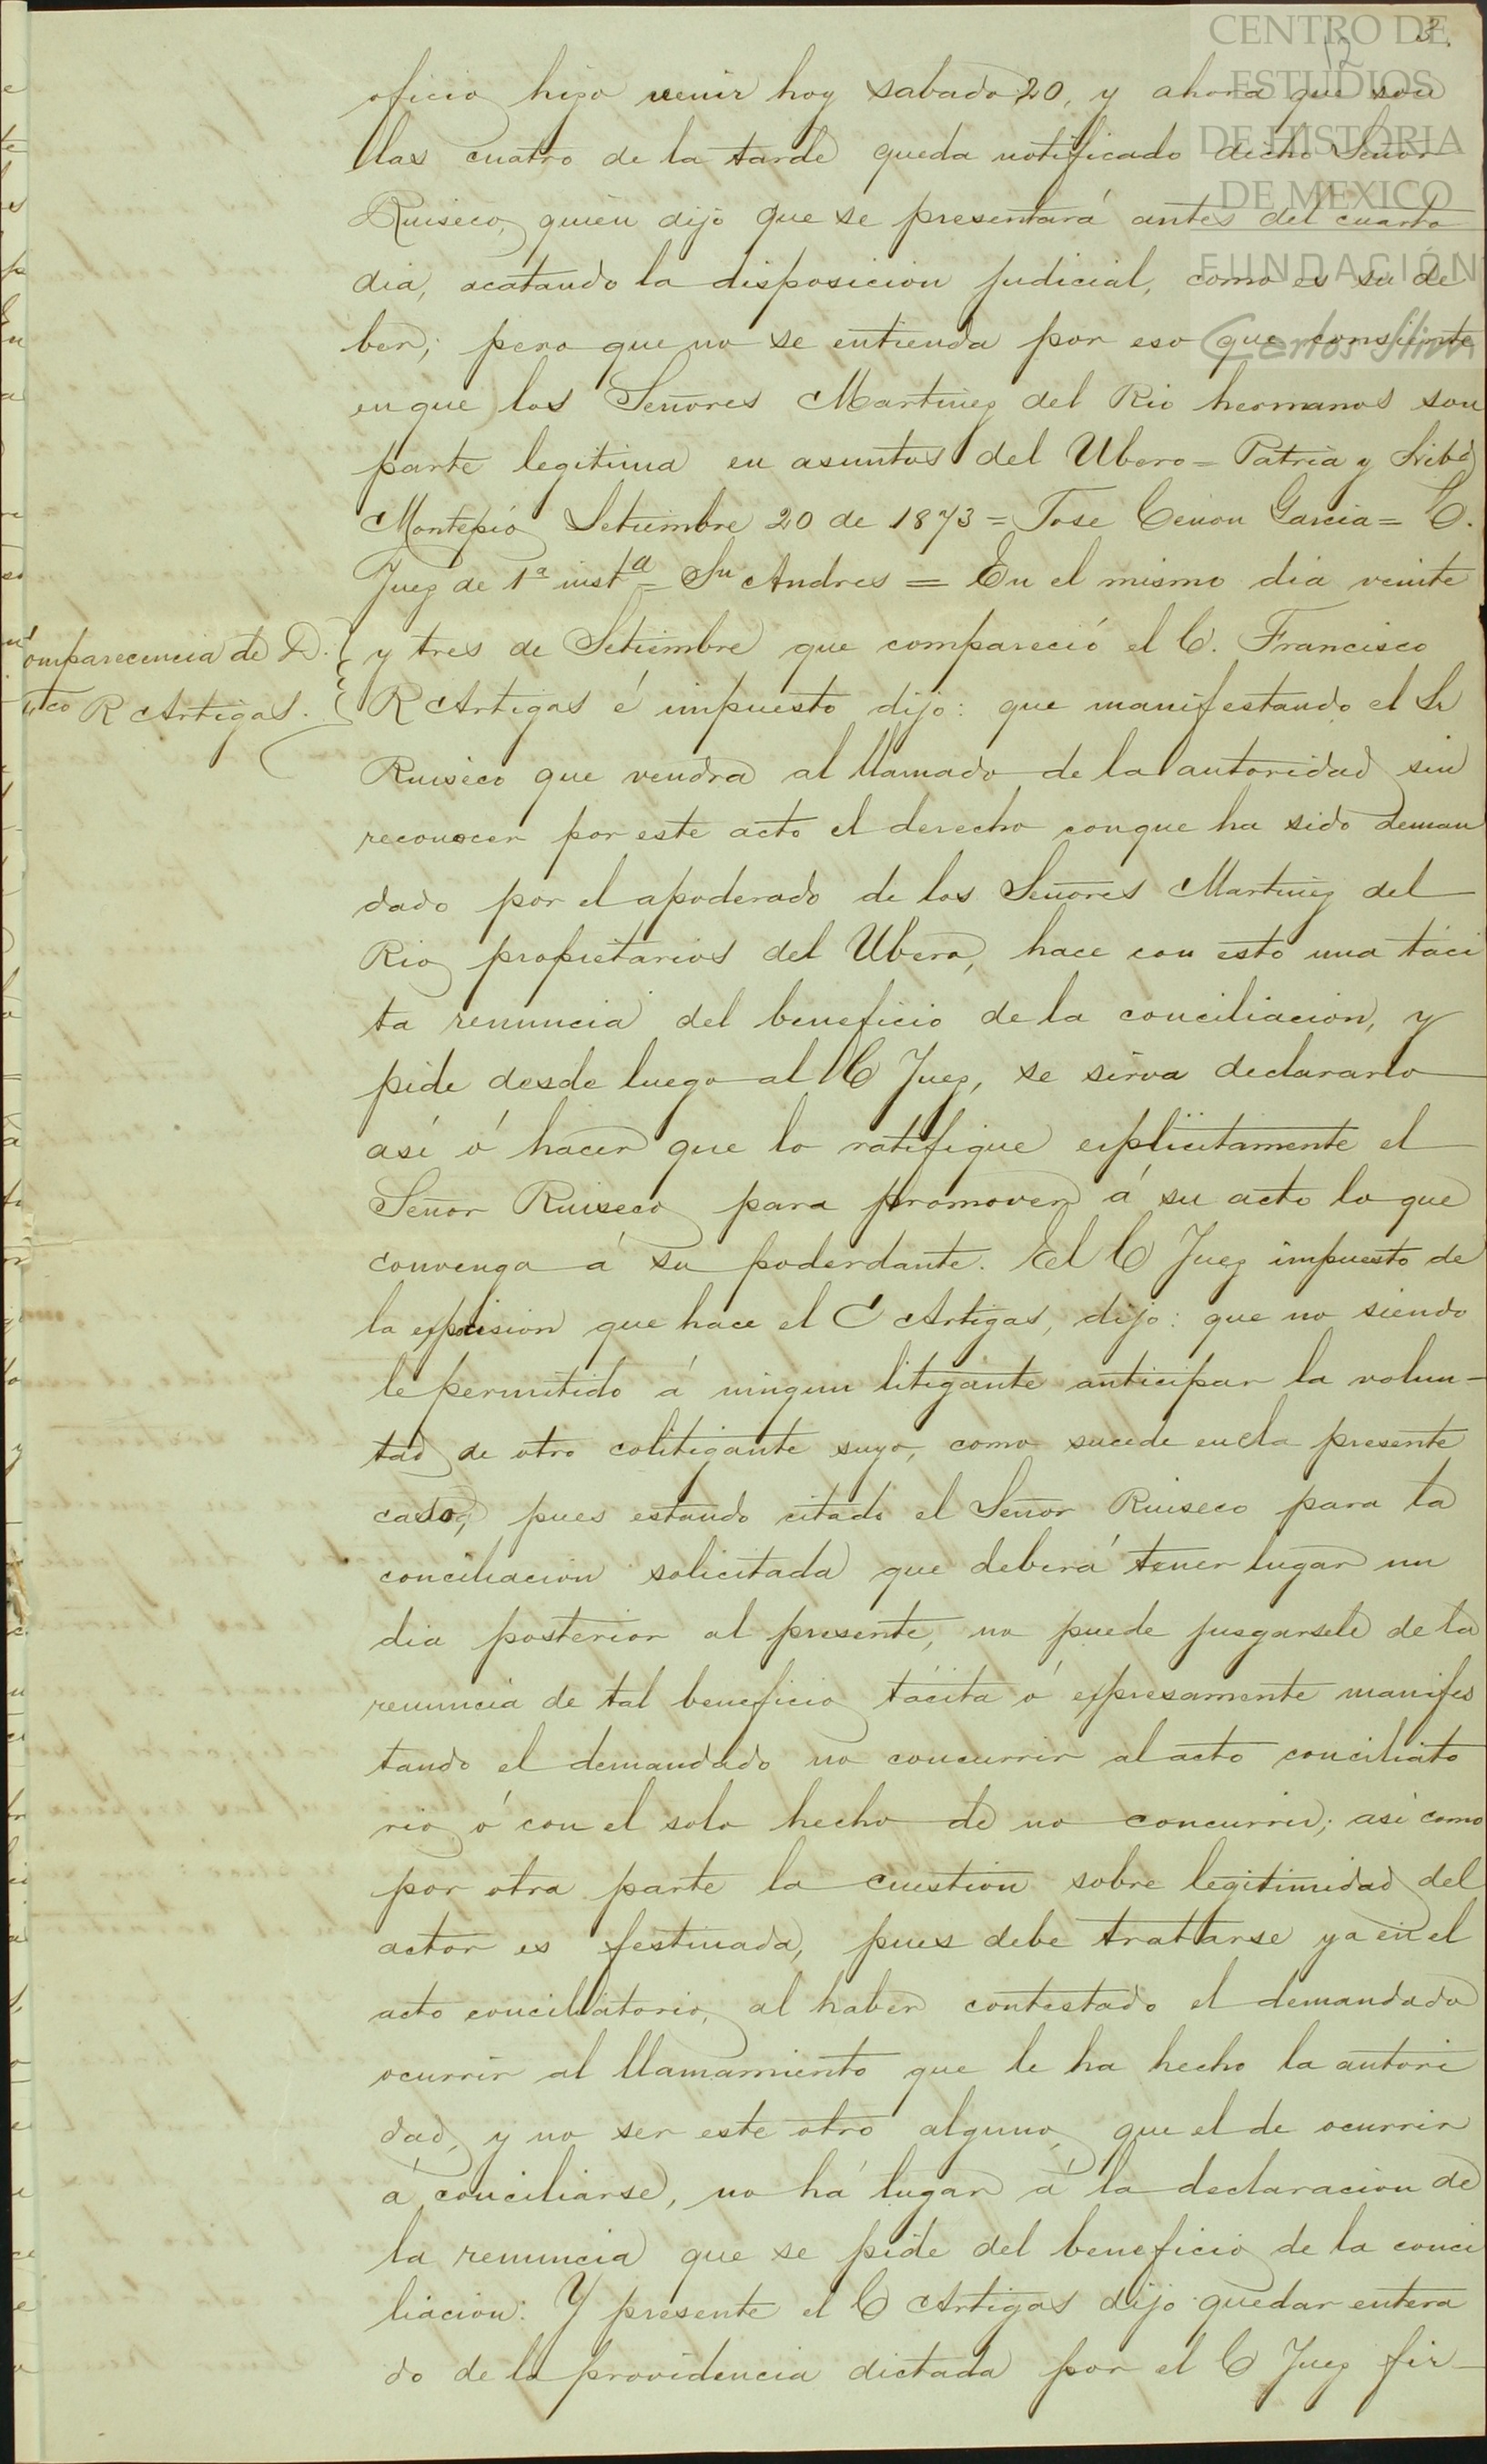 3.
12
CENTRO DE
ESTUDIOS
DE HISTORIA
DE MEXICO
FUNDACIÓN
Carlos Slim
oficio hizo venir hoy sabado 20, y ahora que son
las cuatro de la tarde queda notificado dicho Señor
Ruiseco, quien dijo que se presentará antes del cuarto
dia, acatando la disposicion judicial, como es su de
ber; pero que no se entienda por eso que consiente
en que los Señores Martinez del Rio hermanos son
parte legitima en asuntos del Ubero = Patria y Libd
Montepío Setiembre 20 de 1873 = Jose Cenon Garcia = C.
Juez de 1a insta = Sn Andres = En el mismo dia veinte
y tres de Setiembre que compareció el C. Francisco
omparecencia de D.
co R Artigas.
R Artigas é impuesto dijo: que manifestando el Sr
Ruiseco que vendra al llamado de la autoridad sin
reconocer por este acto el derecho conque ha sido deman
dado por el apoderado de los Señores Martinez del
Rio propietarios del Ubero, hace con esto una táci
ta renuncia del beneficio de la conciliacion, y
pide desde luego al C Juez, se sirva declararlo
así ó hacer que lo ratifique esplicitamente el
Señor Ruiseco para promover á su acto lo que
convenga á su poderdante. El C Juez impuesto de
la que hace el C Artigas, dijo: que no siendo
le permitido á ningun litigante anticipar la volun-
tad de otro colitigante suyo, como sucede en la presente
caso, pues estando citado el Señor Ruiseco para la
conciliacion solicitada que deberá tener lugar un
dia posterior al presente, no puede jusgarsele de la
renuncia de tal beneficio tácita ó espresamente manifes
tando el demandado no concurrir al acto conciliato
rio ó con el solo hecho de no concurrir; así como
por otra parte la cuestion sobre legitimidad del
actor es festinada, pues debe trattarse ya en el
acto conciliatorio, al haber contestado el demandado
ocurrir al llamamiento que le ha hecho la autori
dad, y no ser este otro alguno, que el de ocurrir
á conciliarse, no há lugar á la declaracion de
la renuncia que se pide del beneficio de la conci
liacion: Y presente el C Artigas dijo quedar entera
do de la providencia dictada por el C Juez fir-